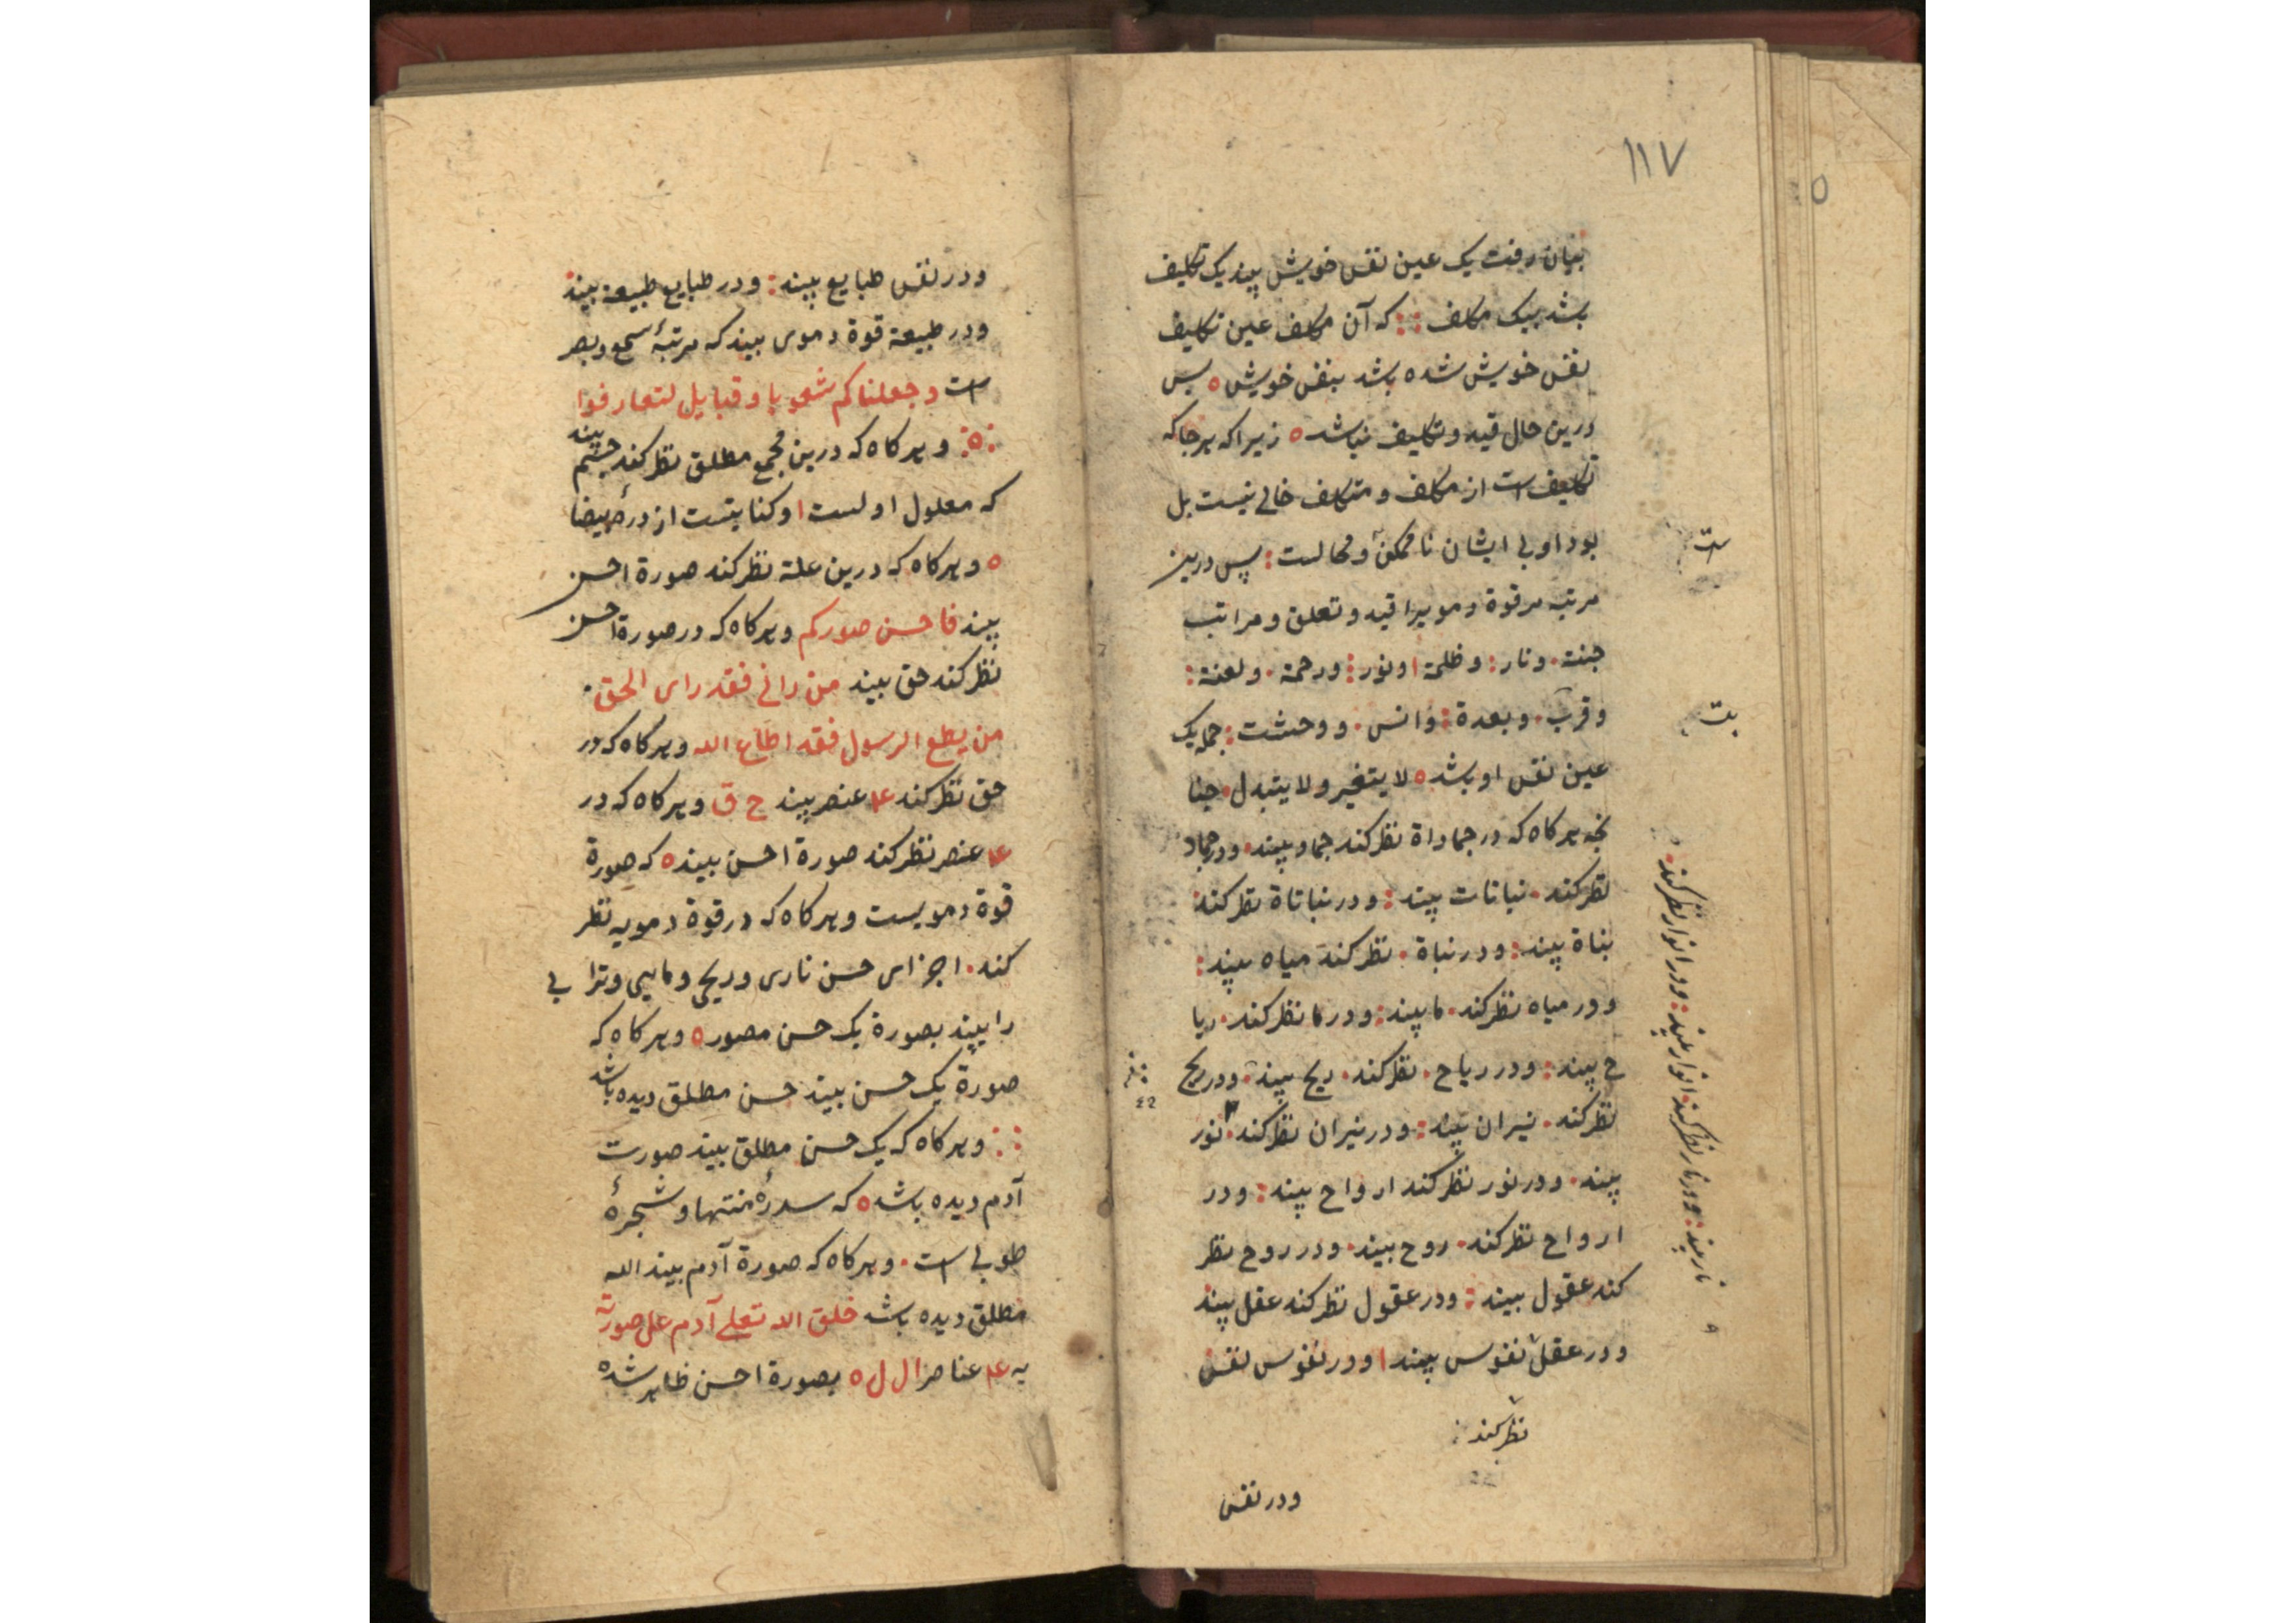 ۱۱۷
بنیان رفت یک عین نفس خویش بیند یک تکلیف
باشد بیک مکلف : : که آن مکلف عین تکلیف
نفس خویش شده باشد بنفس خویش ه پس
درین حال قید و تکلیف نباشد ه زیرا که هر جا که
تکلیف است از مکلف و متکلف خالی نیست بل
بود او بی ایشان ناممکن و محالست : پس درین
مرتبه مر قوة دمویرا قید و تعلق و مراتب
جنت . و نار : و ظلمة ا و نور : و رحمة . و لعنة :
و قرب . و بعدة : و انس . و وحشت : جمله یک
عین نفس او باشد ه لا یتغیر و لا یتبدل . چنا
نجه هر کاه که در جماداة نظر کند جماد بیند . و در جماد
نظر کند . نباتات بیند : و در نباتاة نظر کند
نباة بیند : و در نباة . نظر کند میاه بیند :
و در میاه نظر کند . ما بیند : و در ما نظر کند . ریا
ح بیند : و در ریاح . نظر کند . ریح بیند . و در ریح
نظر کند . نیران بیند : و در نیران نظر کند . نور
بیند . و در نور نظر کند ارواح بیند : و در
ارواح نظر کند . روح بیند . و در روح نظر
کند عقول بیند : و در عقول نظر کند عقل بیند
و در عقل نفوس بیند ا و در نفوس نفس
نظر کند :
و در نفس
است
نار بیند : و در نار نظر کند . انوار بیند : و در انوار نظر کند .
و در نفس طبایع بیند : و در طبایع طبیعة بیند
و در طبیعة قوة دموی بیند که مرتبۀ سمع و بصر
است و جعلناکم شعوبا و قبایل لتعارفوا
: ه : و هر کاه که درین مجمع مطلق نظر کند جسم بیند
که معلول اولست ا و کنایتست از درۀ بیضا
ه و هر کاه که درین علة نظر کند صورة احسن
بیند فاحسن صورکم و هر کاه که در صورة احسن
نظر کند حق بیند من رانی فقد رای الحق .
من یطع الرسول فقد اطاع الله و هر کاه که در
حق نظر کند ۴ عنصر بیند ح ق و هر کاه که در
۴ عنصر نظر کند صورة احسن بیند ه که صورة
قوة دمویست و هر کاه که در قوة دمویه نظر
کند . اجزای حسن ناری و ریحی و مایی و ترابی
را بیند بصورة یک حسن مصور ه و هر کاه که
صورة یک حسن بیند حسن مطلق دیده باشد
: : و هر کاه که یک حسن مطلق بیند صورت
آدم دیده باشد ه که سدرۀ منتها و شجرۀ
طوبی است . و هر کاه که صورة آدم بیند الله
مطلق دیده باشد خلق الله تعلی آدم علی صورته
به ۴ عناصر ا ل ل ه بصورة احسن ظاهر شده